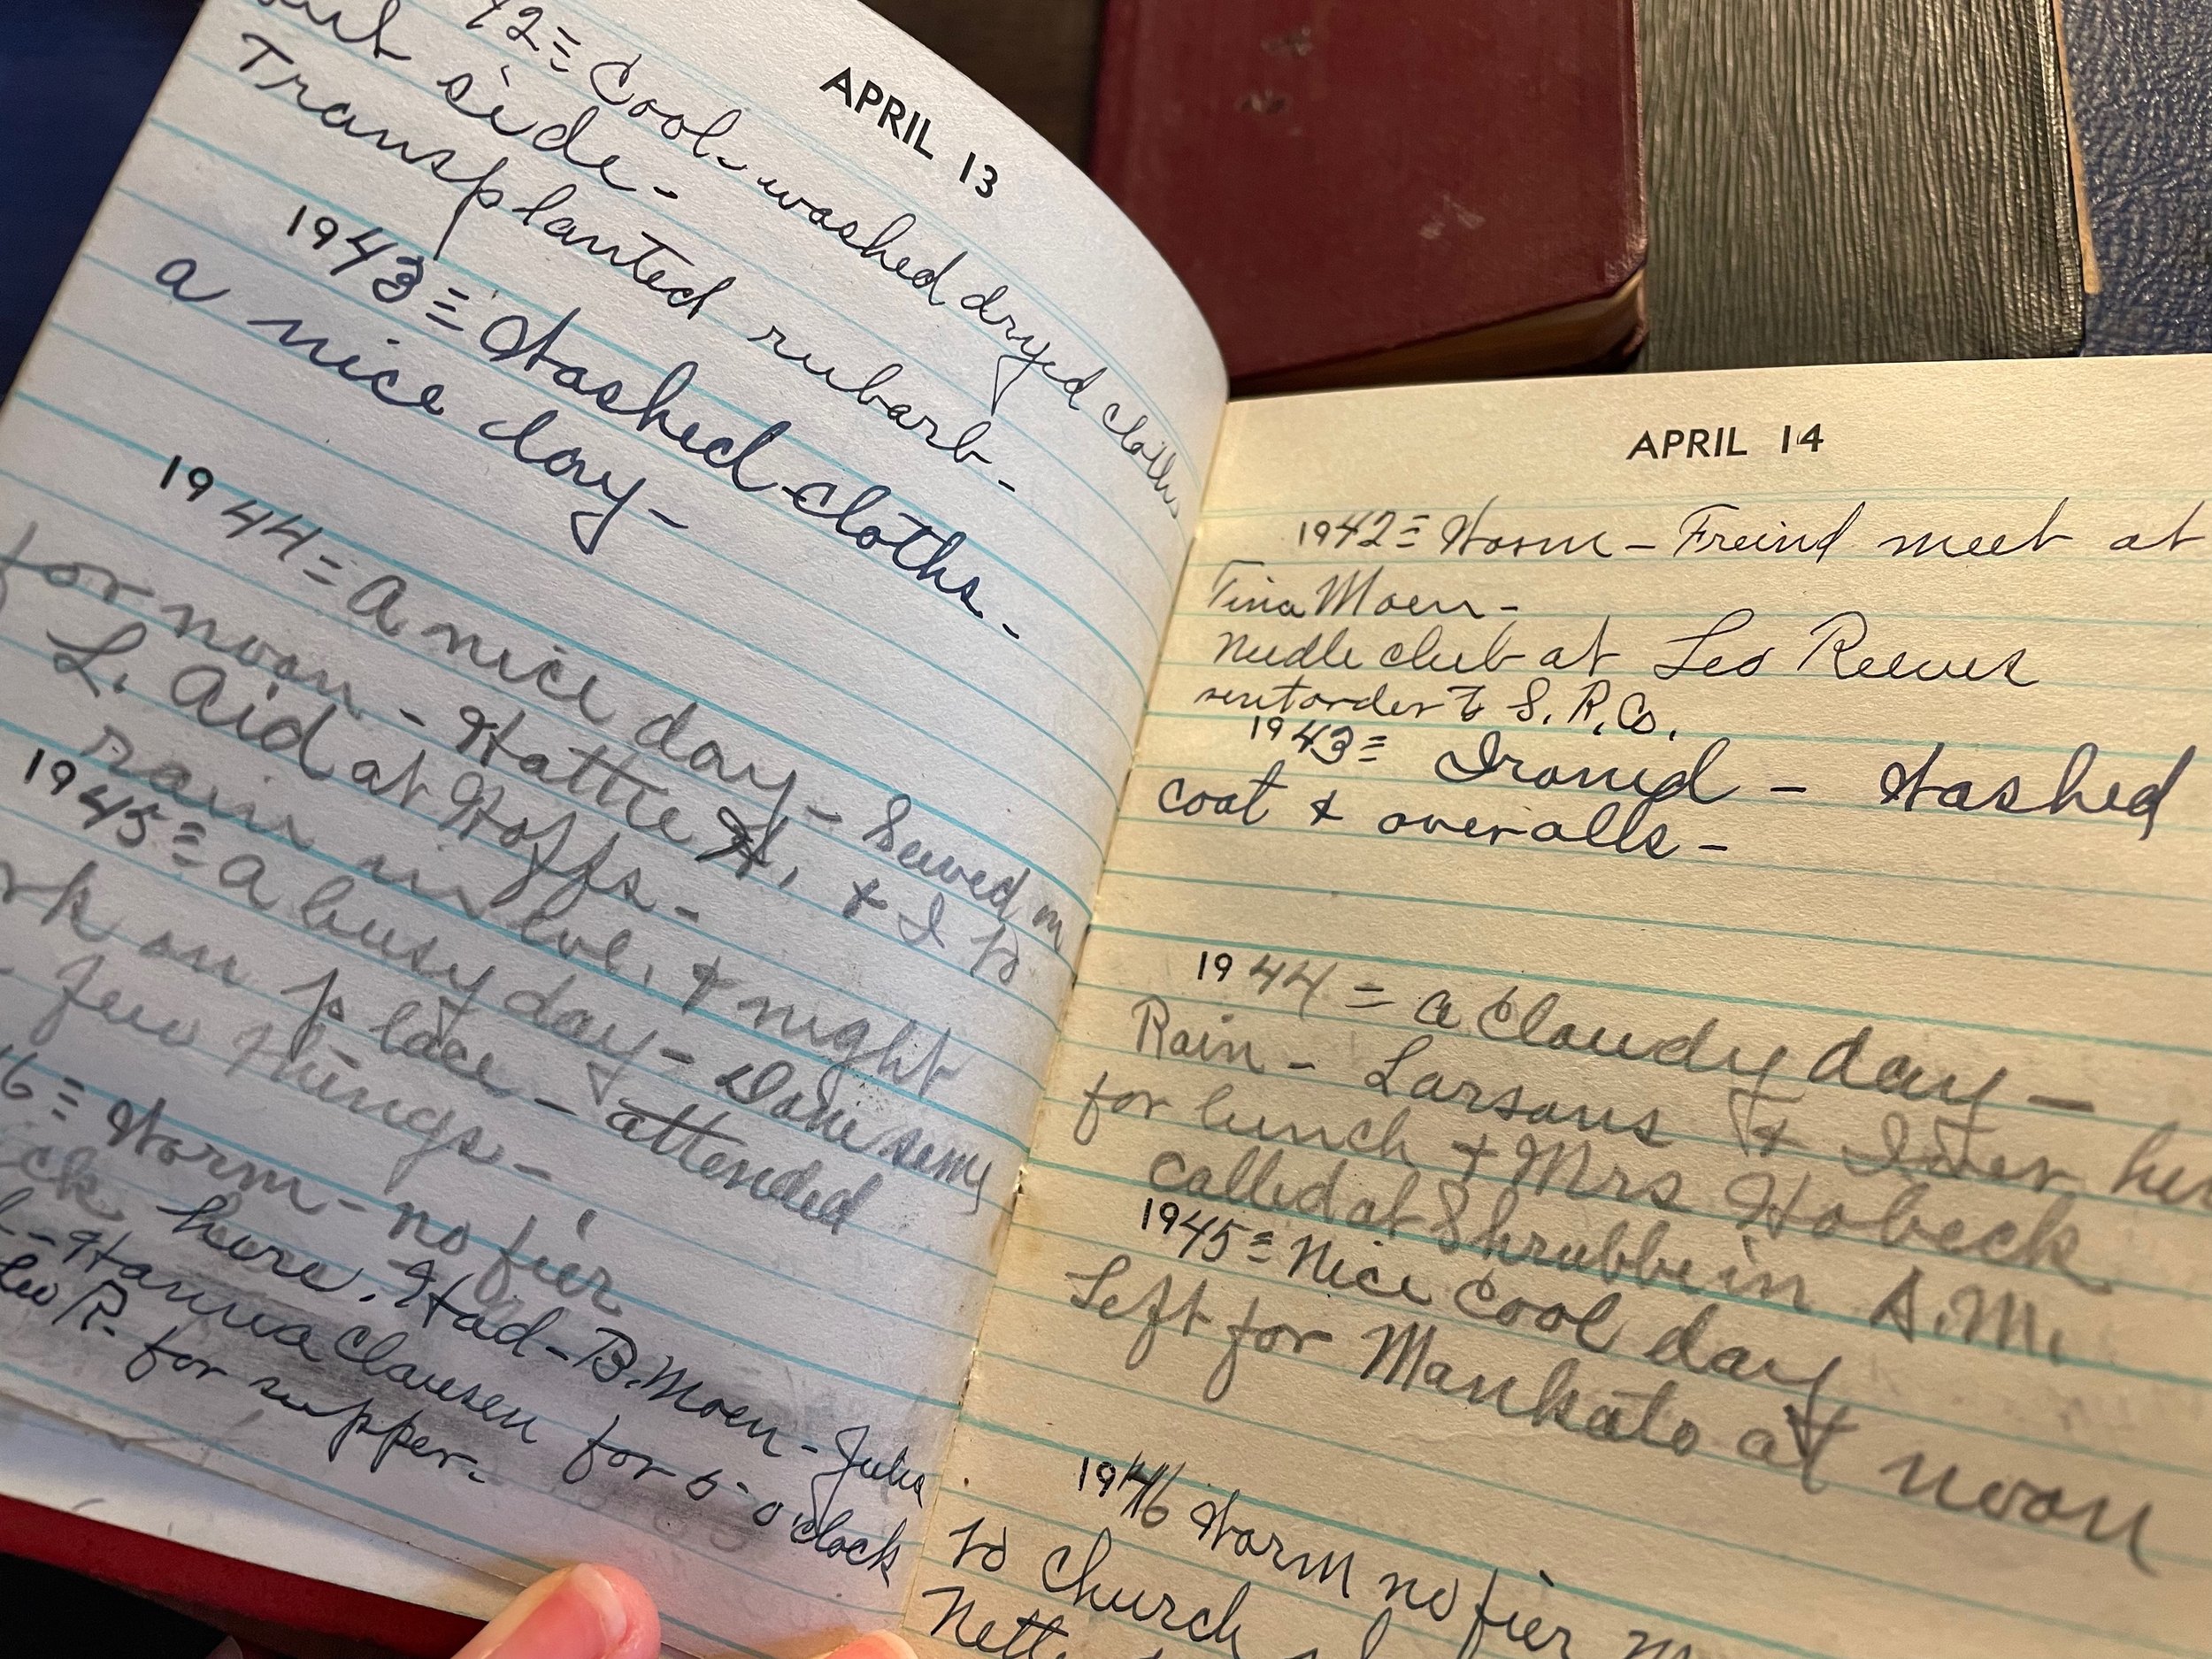 APRIL 13
42= Cool - washed dryed cloths
out side -
Transplanted rubarb -
1943= Washed cloths -
a nice day -
1944= A nice day - Sewed
for noon - Hattie H. + I to
L. Aid at Hoffs -
rain in eve. + night
1945= A busy day - Done
on place - attended
few things -
6= Warm - no fier
here. Had - B. Moen - Julia
Hanna Clausen for 5-o'clock
Leo R. for supper -
APRIL 14
1942= Warm - Freind meet at
Tina Moen -
Needle club at Leo Reeves
sent order to S. R. Co.
1943= Ironed - Washed
coat + overalls -
1944= a cloudy day -
Rain - Larsons + Iver
for lunch + Mrs Hobeck
called at Shrubbe in A.M.
1945= Nice cool day
Left for Mankato at noon
1946 Warm no fier
to church